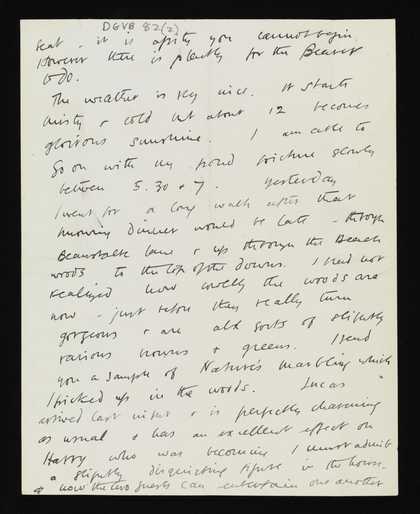 DGVB 82(2)
feat - it is a pity you cannot begin.
However there is plenty for the Beaver
to do.
The weather is very nice. It starts
misty & cold but about 12 becomes
glorious sunshine. I am able to
go on with my pond picture slowly
between 5.30 & 7. Yesterday
I went for a long walk after that
knowing dinner would be late - through
Beanstalk lane & up through the Beach
woods to the top of the downs. I had not
realized how lovely the woods are
now - just before they really turn
gorgeous & are all sorts of slightly
various browns & greens. I send
you a sample of Nature's marbling which
I picked up in the woods. Lucas
arrived last night & is perfectly charming
as usual & has an excellent effect on
Harry who was becoming I must admit
a slightly disquieting figure in the house.
& now the two guests can entertain one another